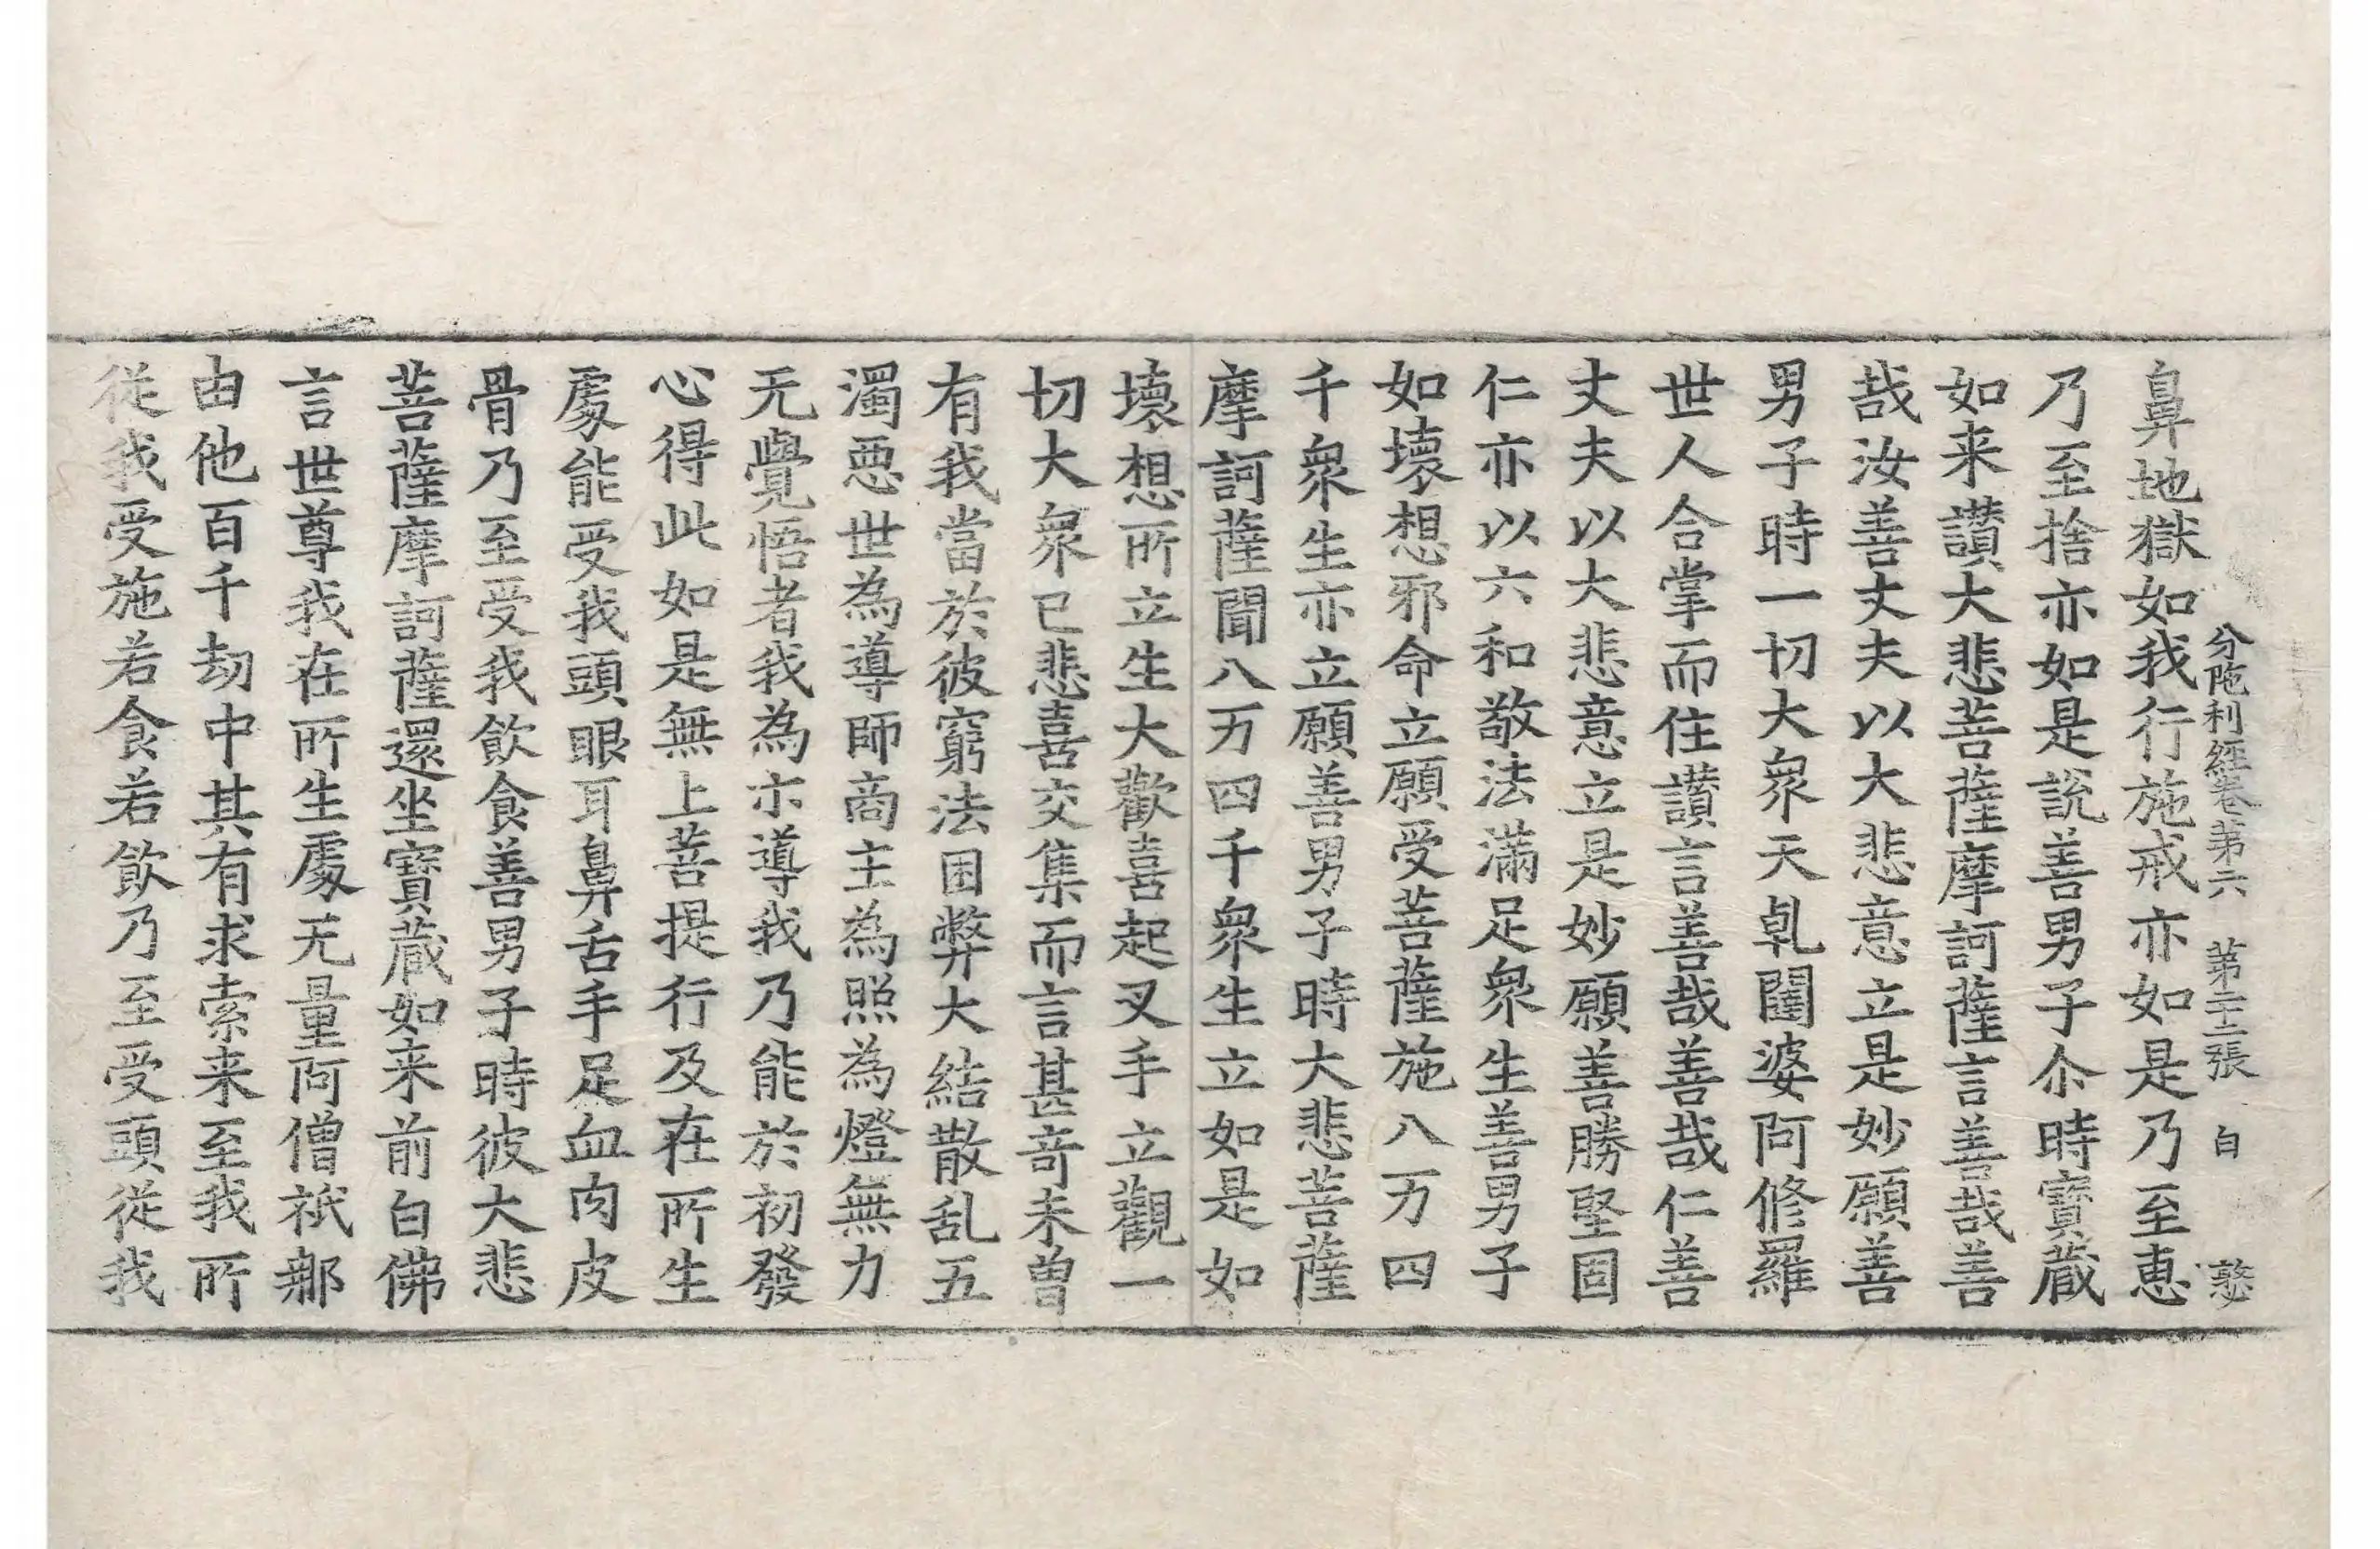 分陁利經卷第六　第二十二張　白　憨
鼻地獄如我行施戒亦如是乃至恵
乃至捨亦如是說善男子尒時寶蔵
如来讃大悲菩薩摩訶薩言善哉善
哉汝善丈夫以大悲意立是妙願善
男子時一切大衆天乹闥婆阿修羅
世人合掌而住讃言善哉善哉仁善
丈夫以大悲意立是妙願善勝堅固
仁亦以六和敬法滿足衆生善男子
如壞想邪命立願受菩薩施八万四
千衆生亦立願善男子時大悲菩薩
摩訶薩聞八万四千衆生立如是如
壞想所立生大歡喜起叉手立觀一
切大衆已悲喜交集而言甚奇未曽
有我當於彼窮法困弊大結散乱五
濁惡世為導師商主為照為燈無力
无覺悟者我為尒導我乃能於初發
心得此如是無上菩提行及在所生
處能受我頭眼耳鼻舌手足血肉皮
骨乃至受我飲食善男子時彼大悲
菩薩摩訶薩還坐寶蔵如来前白佛
言世尊我在所生處无量阿僧祇那
由他百千劫中其有求索来至我所
從我受施若食若飲乃至受頭從我